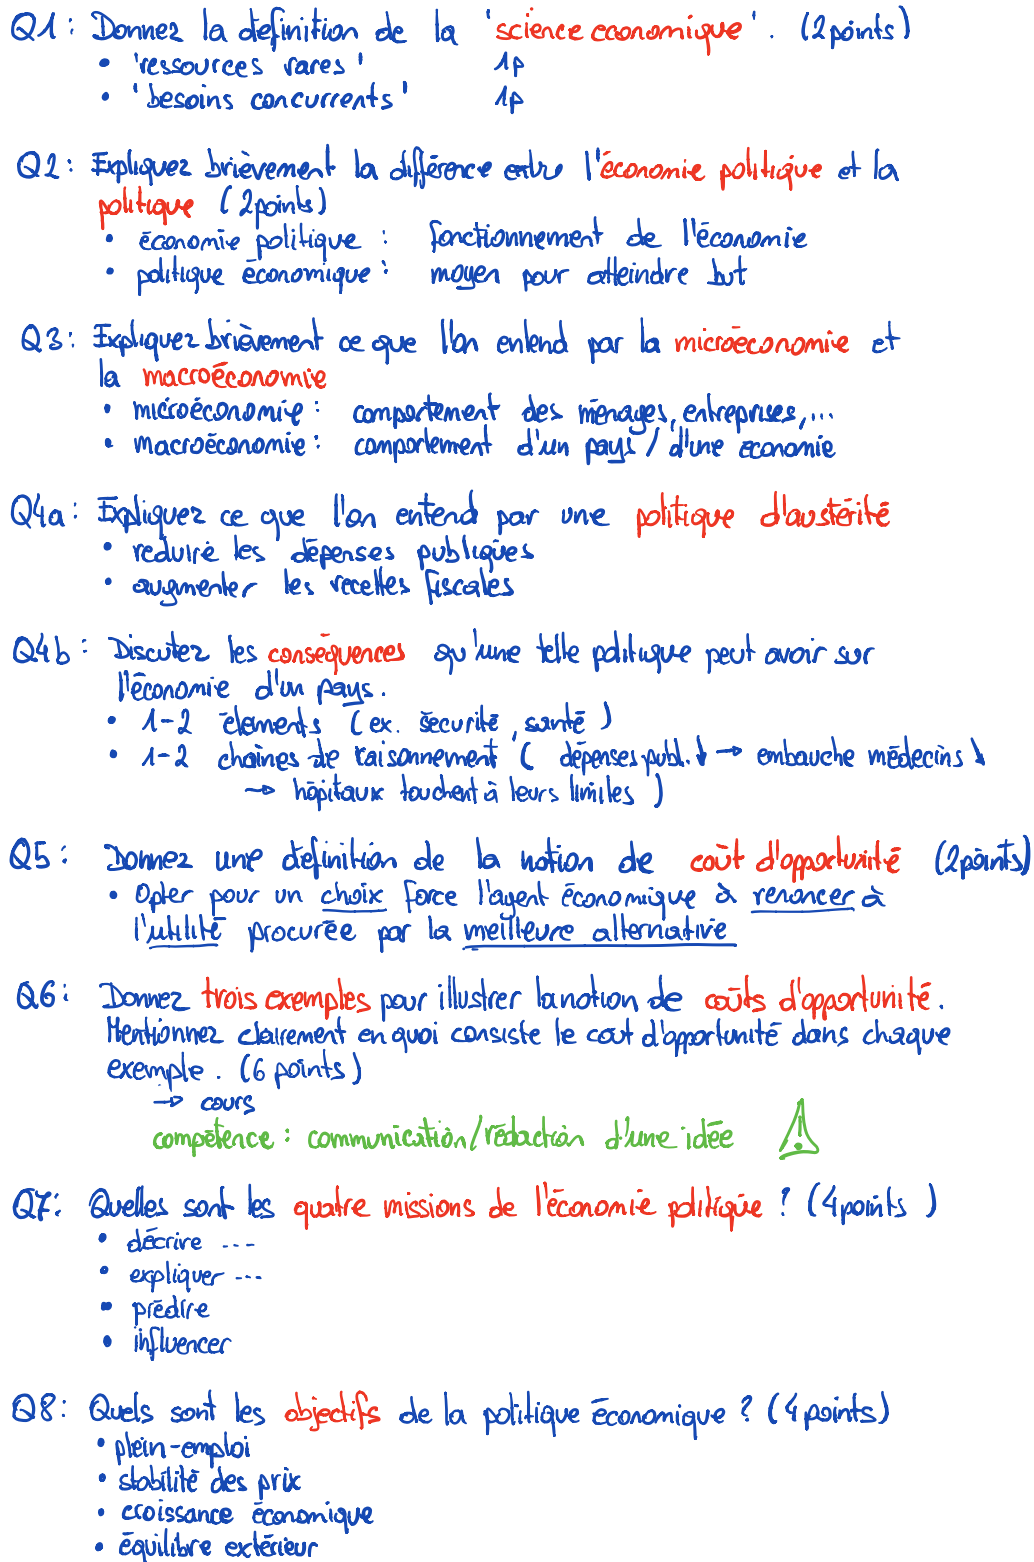 Q1 : Donnez la définition de la 'science économique'. (2 points)
• 'ressources rares' 1p
• 'besoins concurrents' 1p
Q2 : Expliquez brièvement la différence entre l'économie politique et la
politique (2 points)
• économie politique : fonctionnement de l'économie
• politique économique : moyen pour atteindre but
Q3 : Expliquez brièvement ce que l'on entend par la microéconomie et
la macroéconomie
• microéconomie : comportement des ménages, entreprises, ...
• macroéconomie : comportement d'un pays / d'une économie
Q4a : Expliquez ce que l'on entend par une politique d'austérité
• réduire les dépenses publiques
• augmenter les recettes fiscales
Q4b : Discutez les conséquences qu'une telle politique peut avoir sur
l'économie d'un pays.
• 1-2 éléments (ex. sécurité, santé)
• 1-2 chaînes de raisonnement ( dépenses publ. ↓ → embauche médecins ↓
→ hôpitaux touchent à leurs limites )
Q5 : Donnez une définition de la notion de coût d'opportunité (2 points)
• Opter pour un choix force l'agent économique à renoncer à
l'utilité procurée par la meilleure alternative
Q6 : Donnez trois exemples pour illustrer la notion de coûts d'opportunité.
Mentionnez clairement en quoi consiste le coût d'opportunité dans chaque
exemple. (6 points)
→ cours
compétence : communication/rédaction d'une idée !
Q7 : Quelles sont les quatre missions de l'économie politique ? (4 points )
• décrire ...
• expliquer ...
• prédire
• influencer
Q8 : Quels sont les objectifs de la politique économique ? (4 points)
• plein-emploi
• stabilité des prix
• croissance économique
• équilibre extérieur